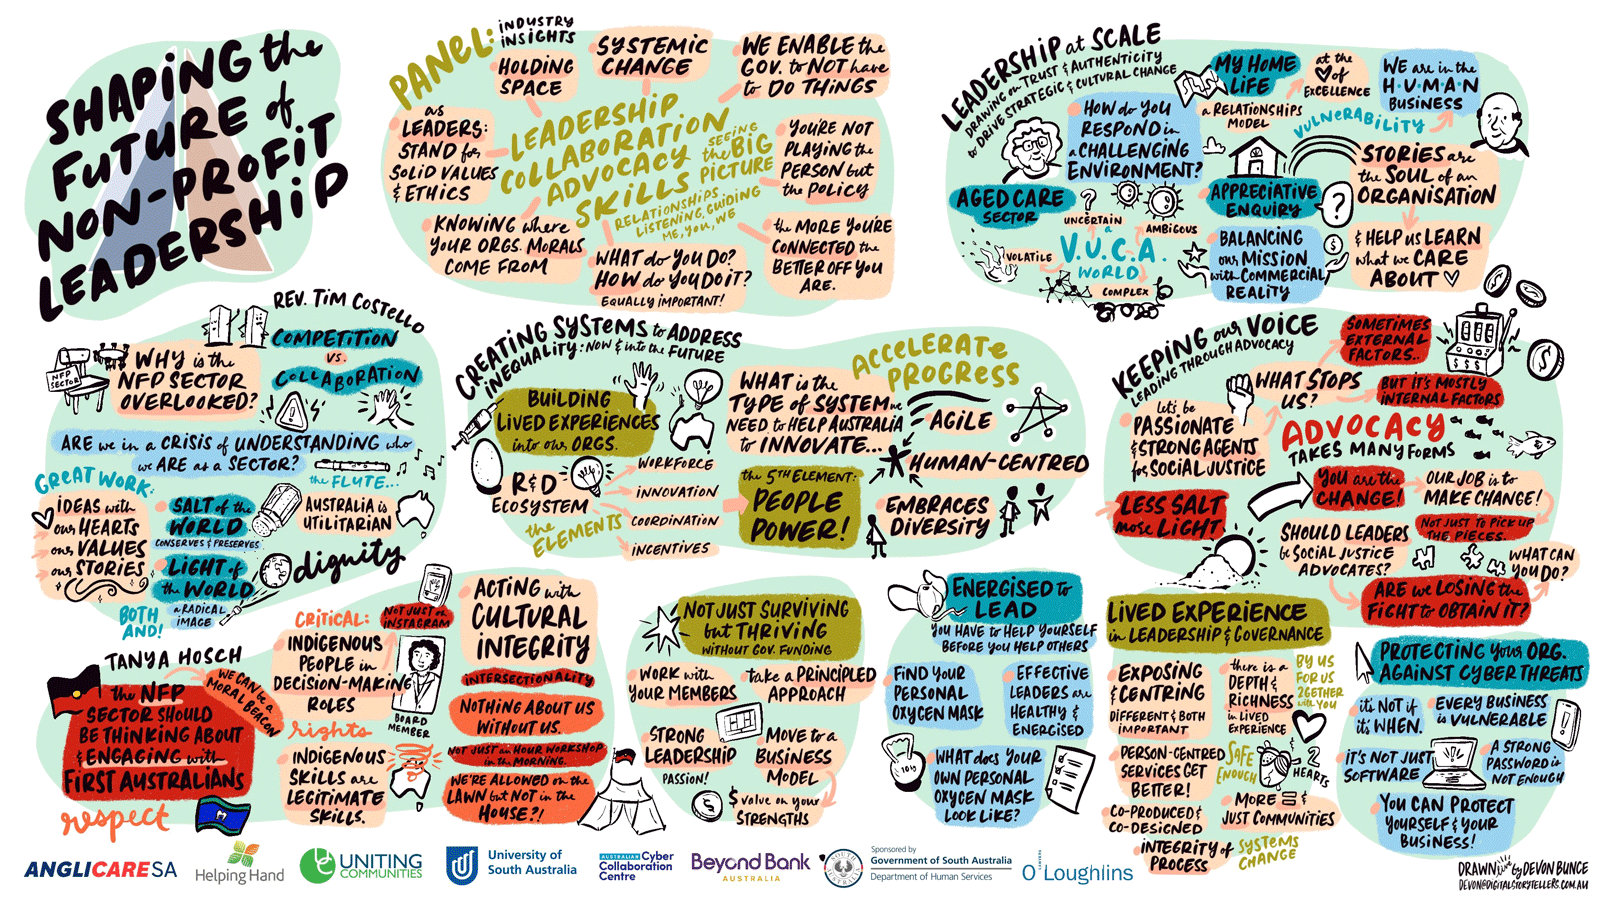 SHAPING the
FUTURE of
NON-PROFIT
LEADERSHIP
PANEL: INDUSTRY
INSIGHTS
HOLDING
SPACE
SYSTEMIC
CHANGE
WE ENABLE the
GOV. to NOT have
to DO THINGS
as
LEADERS:
STAND for
SOLID VALUES
& ETHICS
LEADERSHIP
COLLABORATION
ADVOCACY
SKILLS
SEEING
the BIG
PICTURE
RELATIONSHIPS
LISTENING, GUIDING
ME, YOU, WE
YOU'RE NOT
PLAYING the
PERSON but
the POLICY
KNOWING where
YOUR ORGS. MORALS
COME FROM
WHAT do YOU DO?
HOW do YOU DO iT?
EQUALLY IMPORTANT!
the MORE YOU'RE
CONNECTED the
BETTER OFF YOU
ARE.
LEADERSHIP at SCALE
DRAWING on TRUST & AUTHENTICITY
to DRIVE STRATEGIC & CULTURAL CHANGE
HOW do YOU
RESPOND in
a CHALLENGING
ENVIRONMENT?
MY HOME
LIFE
a RELATIONSHIPS
MODEL
at the
♡ of
EXCELLENCE
WE are in the
H·U·M·A·N
BUSINESS
VULNERABILITY
AGED CARE
SECTOR
?
UNCERTAIN
AMBIGOUS
a
V.U.C.A.
WORLD
VOLATILE
COMPLEX
APPRECIATIVE
ENQUIRY
?
BALANCING
our MISSION
with COMMERCIAL
REALITY
$
STORIES are
the SOUL of an
ORGANISATION
& HELP us LEARN
what we CARE
ABOUT ♡
REV. TIM COSTELLO
COMPETITION
vs.
COLLABORATION
NFP
SECTOR
WHY is the
NFP SECTOR
OVERLOOKED?
ARE we in a CRISIS of UNDERSTANDING who
we ARE as a SECTOR?
the FLUTE...
GREAT WORK:
IDEAS with
our HEARTS
our VALUES
our STORIES
SALT of the
WORLD
CONSERVES & PRESERVES
LIGHT of
the WORLD
AUSTRALIA is
UTILITARIAN
dignity
BOTH
AND!
a RADICAL
IMAGE
CREATING SYSTEMS to ADDRESS
INEQUALITY: NOW & into the FUTURE
BUILDING
LIVED EXPERIENCES
into our ORGS.
R&D
ECOSYSTEM
the
ELEMENTS
WORKFORCE
INNOVATION
COORDINATION
INCENTIVES
WHAT is the
TYPE of SYSTEM we
NEED to HELP AUSTRALIA
to INNOVATE...
the 5TH ELEMENT:
PEOPLE
POWER!
ACCELERATE
PROGRESS
AGILE
HUMAN-CENTRED
EMBRACES
DIVERSITY
KEEPING our VOICE
LEADING THROUGH ADVOCACY
SOMETIMES
EXTERNAL
FACTORS..
WHAT STOPS
US?
BUT iT'S MOSTLY
INTERNAL FACTORS
$
let's be
PASSIONATE
& STRONG AGENTS
for SOCIAL JUSTICE
ADVOCACY
TAKES MANY FORMS
LESS SALT
more LIGHT.
YOU are the
CHANGE!
OUR JOB is to
MAKE CHANGE!
NOT JUST to PICK UP
the PIECES.
SHOULD LEADERS
be SOCIAL JUSTICE
ADVOCATES?
WHAT CAN
YOU DO?
ARE we LOSING the
FIGHT to OBTAIN iT?
TANYA HOSCH
WE CAN be a
MORAL BEACON
the NFP
SECTOR SHOULD
BE THINKING ABOUT
& ENGAGING with
FIRST AUSTRALIANS
respect
CRITICAL:
NOT JUST on
INSTAGRAM
INDIGENOUS
PEOPLE in
DECISION-MAKING
ROLES
rights
BOARD
MEMBER
INDIGENOUS
SKILLS are
LEGITIMATE
SKILLS.
ACTING with
CULTURAL
INTEGRITY
INTERSECTIONALITY
NOTHING ABOUT US
WITHOUT US.
NOT JUST an HOUR WORKSHOP
in the MORNING.
WE'RE ALLOWED on the
LAWN but NOT in the
HOUSE?!
NOT JUST SURVIVING
but THRIVING
WITHOUT GOV. FUNDING
WORK with
YOUR MEMBERS
take a PRINCIPLED
APPROACH
STRONG
LEADERSHIP
PASSION!
MOVE to a
BUSINESS
MODEL
$
$ value on your
STRENGTHS
ENERGISED to
LEAD
YOU HAVE to HELP YOURSELF
BEFORE YOU HELP OTHERS
FIND YOUR
PERSONAL
OXYGEN MASK
EFFECTIVE
LEADERS are
HEALTHY &
ENERGISED
WHAT does YOUR
OWN PERSONAL
OXYGEN MASK
LOOK LIKE?
LIVED EXPERIENCE
in LEADERSHIP & GOVERNANCE
EXPOSING
& CENTRING
DIFFERENT & BOTH
IMPORTANT
there is a
DEPTH &
RICHNESS
in LIVED
EXPERIENCE
BY US
FOR US
2GETHER
with YOU
PERSON-CENTRED
SERVICES GET
BETTER!
SAFE
ENOUGH
2
HEARTS
CO-PRODUCED &
CO-DESIGNED
MORE = &
JUST COMMUNITIES
INTEGRITY of
PROCESS
SYSTEMS
CHANGE
PROTECTING your ORG.
AGAINST CYBER THREATS
it's NOT if
it's WHEN.
EVERY BUSINESS
is VULNERABLE
IT'S NOT JUST
SOFTWARE
A STRONG
PASSWORD is
NOT ENOUGH
YOU CAN PROTECT
YOURSELF & YOUR
BUSINESS!
ANGLICARE SA
Helping Hand
UNITING
COMMUNITIES
University of
South Australia
AUSTRALIAN Cyber
Collaboration
Centre
Beyond Bank
AUSTRALIA
Sponsored by
Government of South Australia
Department of Human Services
O'Loughlins
LAWYERS
DRAWN live by DEVON BUNCE
DEVON@DIGITALSTORYTELLERS.COM.AU